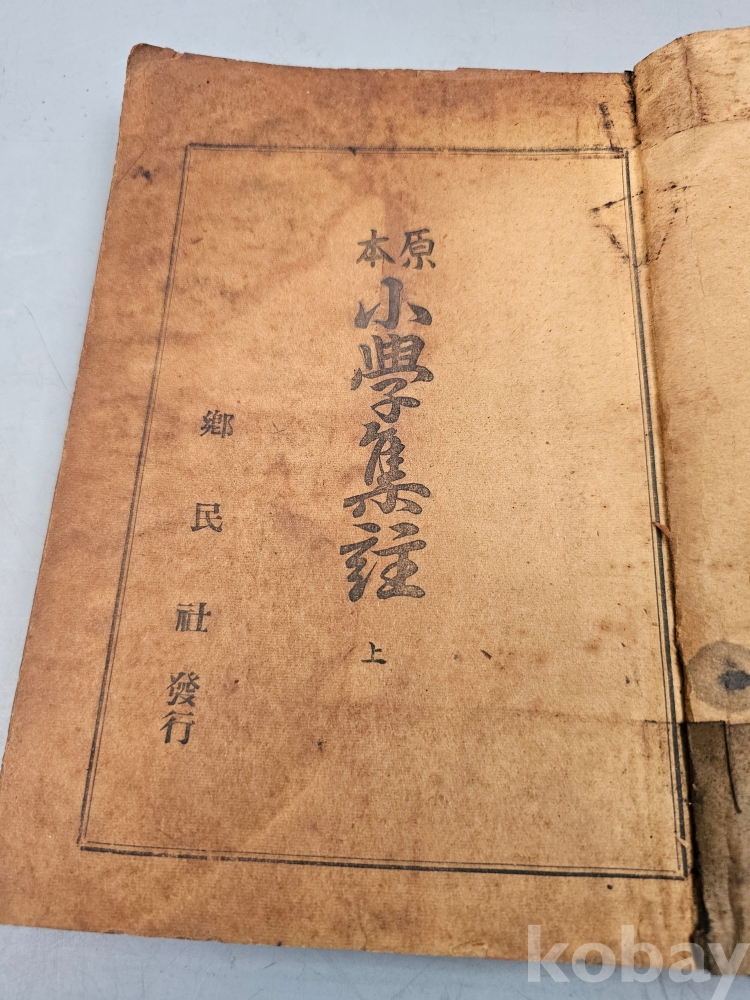 原本
小學集註
上
鄕民社發行
kobay